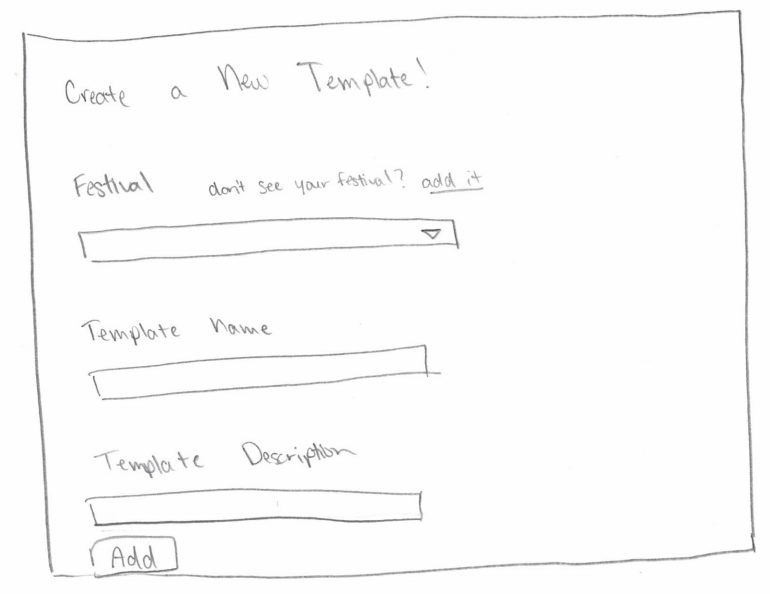 Create a New Template!
Festival don't see your festival? add it
Template Name
Template Description
Add